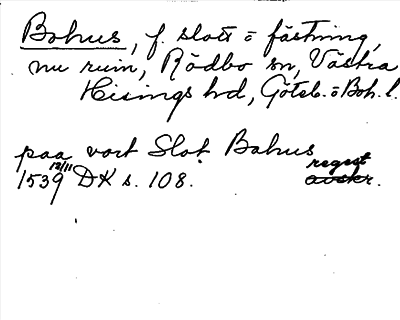 Bohus, f. slott o fästning,
nu ruin, Rödbo sn, Västra
Hisings hd, Göteb. o Boh. l.
paa vort Slot Bahus
1539 12/11 DK s. 108. regest avskr.